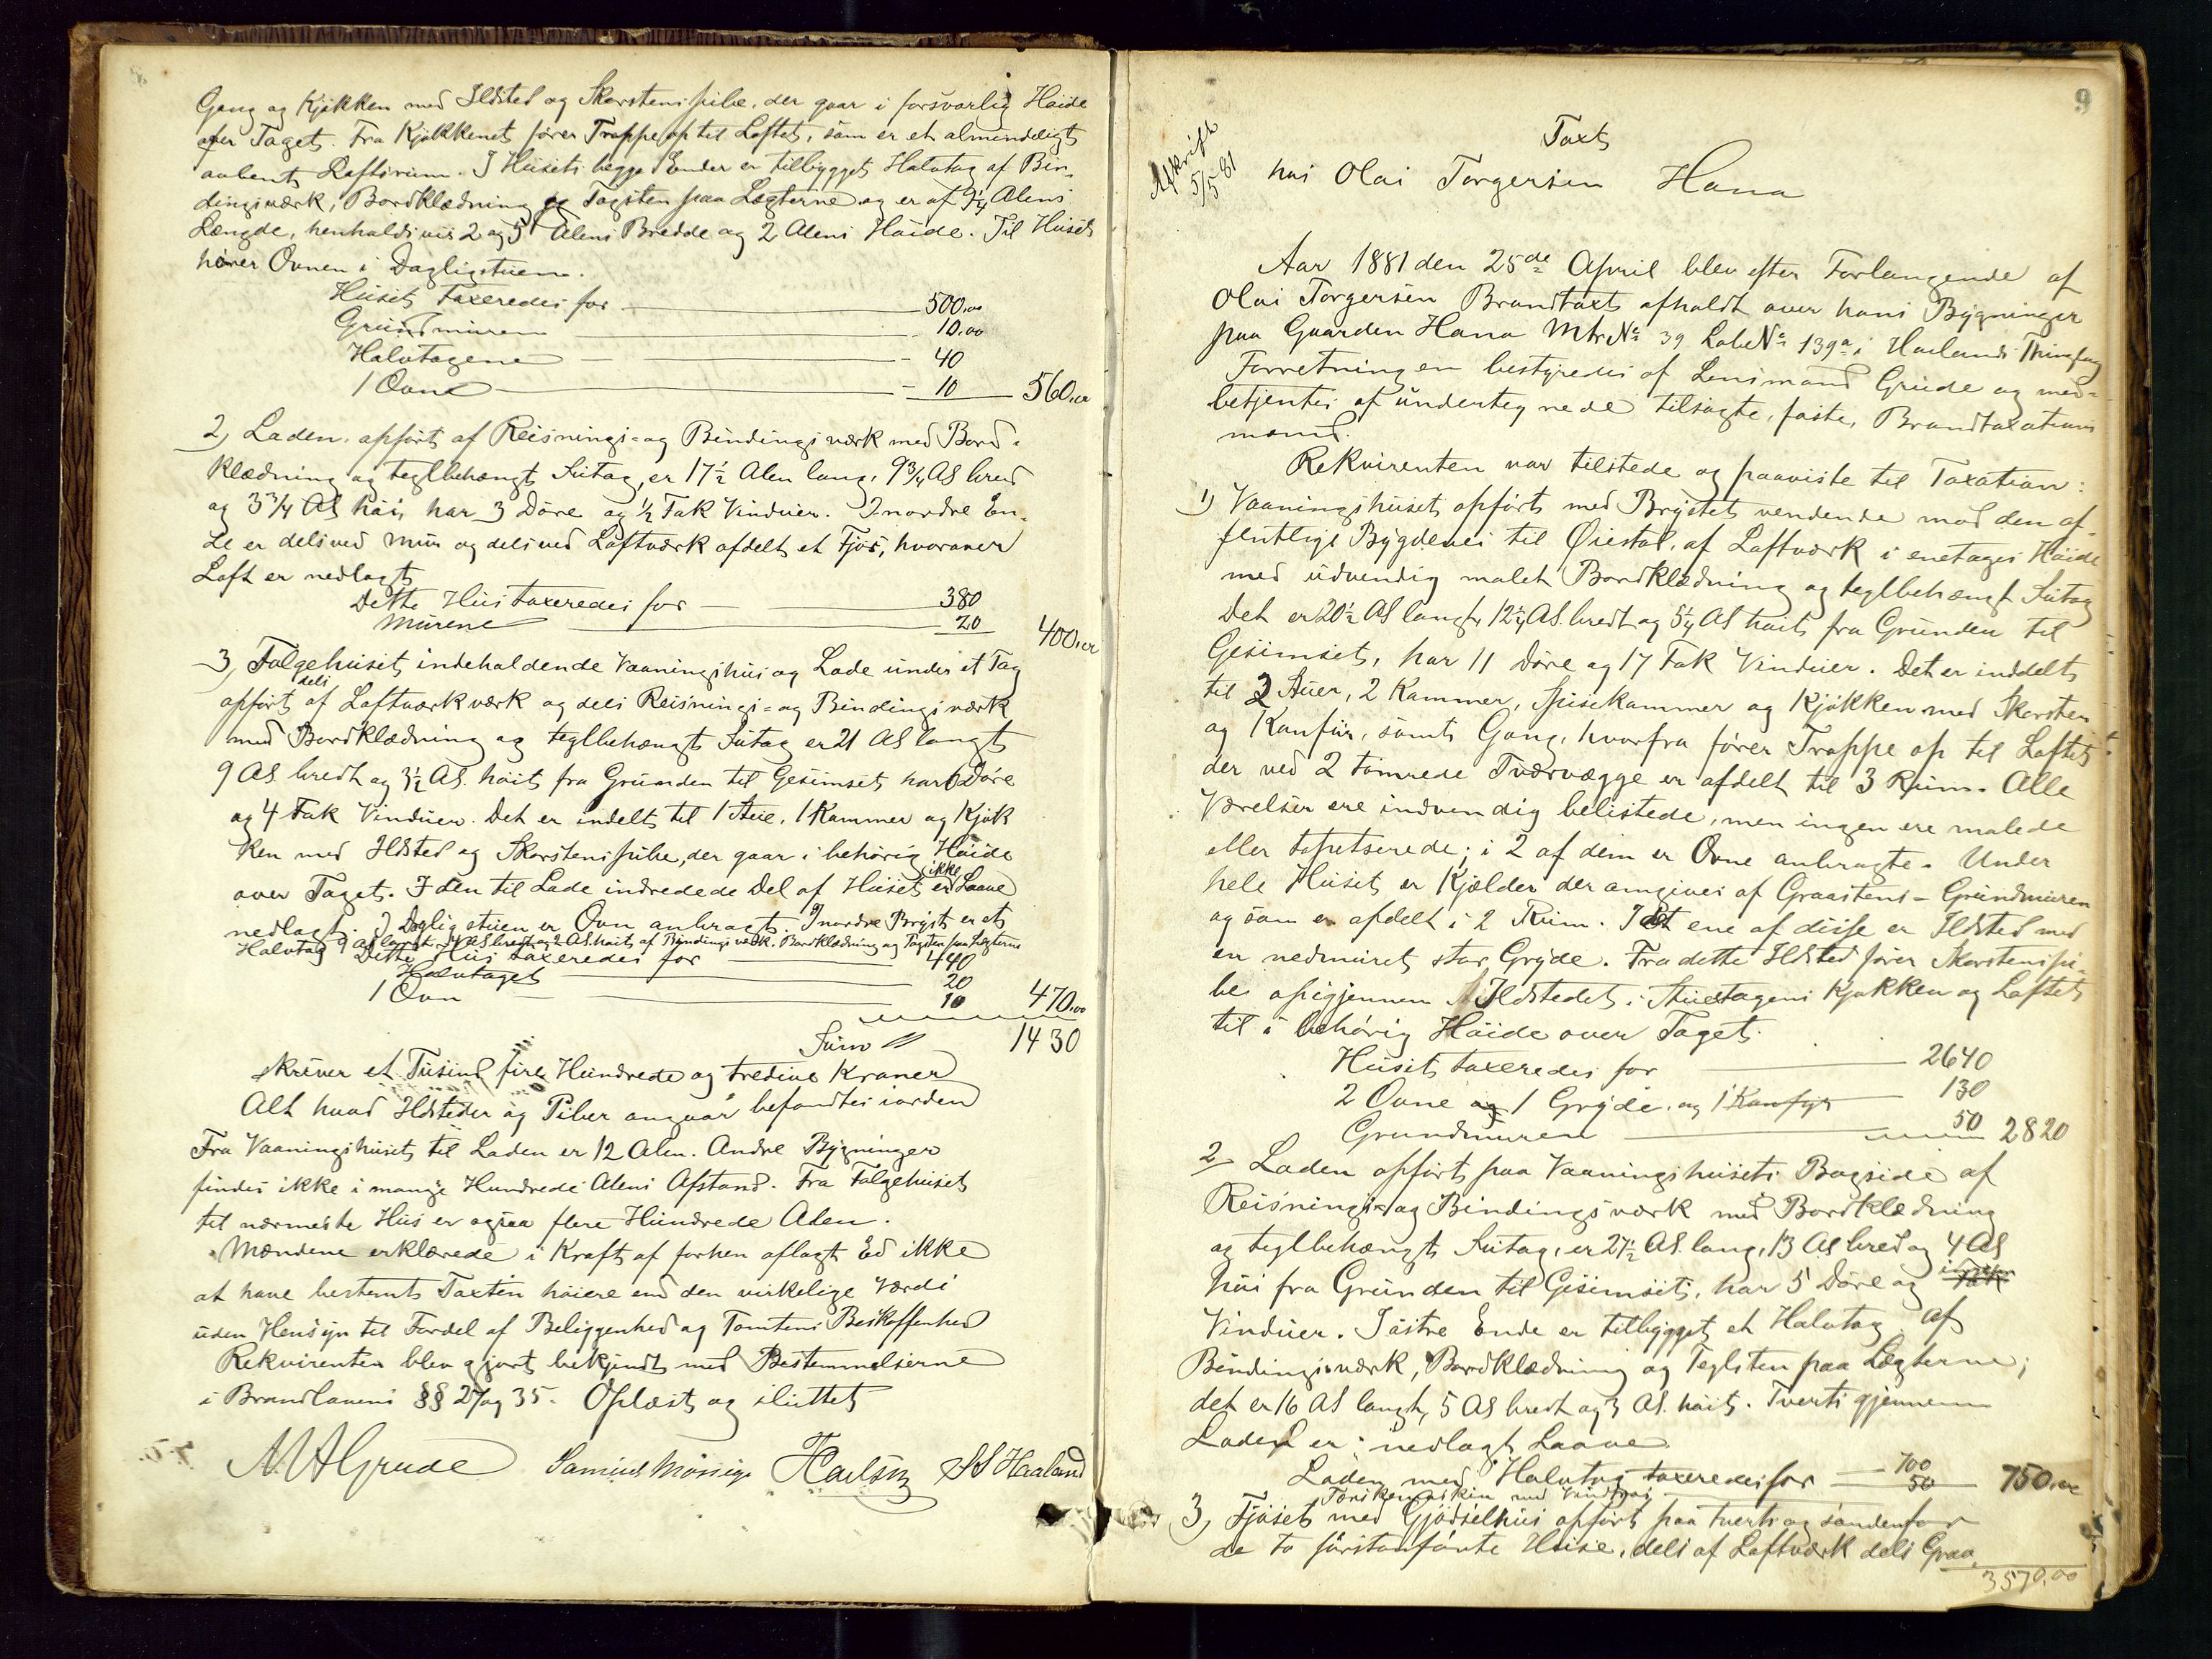 Gang og Kjøkken med Ildsted og Skorstenspibe, der gaar i forsvarlig Høide
over Taget. Fra Kjøkkenet fører Trappe op til Loftet, som er et almindeligt
aabent Loftsrum. I Husets begge Ender er tilbygget Halvtag af Bin-
dingsværk, Bordklædning og Tagsten paa Lægterne og er af 9¼ Alens
Længde, henholdsvis 2 og 5 Alens Bredde og 2 Alens Høide. Til Huset
hører Ovnen i Dagligstuen.
Huset taxeredes for 500.00
Grundmuren 10.00
Halvtagene 40
1 Ovn 10 560.00
2, Laden, opført af Reisnings- og Bindingsværk med Bord-
klædning og teglbehængt Sutag, er 17½ Alen lang, 9¾ Al bred
og 3¾ Al høi, har 3 Døre og ½ Fak Vinduer. I nordre En-
de er dels ved Mur og dels ved Laftværk afdelt et Fjøs, hvorover
Loft er nedlagt
Dette Hus taxeredes for 380
Murene 20 400.00
3, Følgehuset, indeholdende Vaaningshus og Lade under et Tag
dels
opført af Laftværk værk og dels Reisnings- og Bindingsværk
med Bordklædning og teglbehængt Sutag er 21 Al langt
9 Al. bredt og 3½ Al. høit fra Grunden til Gesimset har 6 Døre
og 4 Fak Vinduer. Det er indelt til 1 Stue, 1 Kammer og Kjøk
ken med Ildsted og Skorstenspibe, der gaar i behørig Høide
ikke
over Taget. I den til Lade indredede Del af Huset er Laave
nedlagt. I Dagligstuen er Ovn anbragt. I nordre Bryst er et
Halvtag 9 Al langt Al bredt og 2 Al. høit af Bindingsværk. Bordklædning og Tagsten paa Lægterne
Dette Hus taxeredes for 440
Halvtaget 20
1 Ovn 10 470.00
Sum 1430
skriver et Tusind fire Hundrede og tredive Kroner
Alt hvad Ildsteder og Piber angaar befandtes iorden
Fra Vaaningshuset til Laden er 12 Alen. Andre Bygninger
findes ikke i mange Hundrede Alens Afstand. Fra Følgehuset
til nærmeste Hus er ogsaa flere Hundrede Alen.
Mændene erklærede i Kraft af forhen aflagt Ed ikke
at have bestemt Taxten høiere end den virkelige Værdi
uden Hensyn til Fordel af Beliggenhed og Tomtens Beskaffenhed
Rekvirenten blev gjort bekjendt med Bestemmelserne
i Brandlovens §§ 27 og 35. Oplæst og sluttet
A. A Grude Samuel Mossige S S Haaland
9
Afskrift
5/5 81
Taxt
hos Olai Torgersen Hana
Aar 1881 den 25de April blev efter Forlangende af
Olai Torgersen Brandtaxt afholdt over hans Bygninger
paa Gaarden Hana Mtr No 39 Løbe No 139a i Høilands Thinglaug
Forretningen bestyredes af Lensmand Grude og med-
betjentes af undertegnede tilsagte, faste, Brandtaxations
mænd.
Rekvirenten var tilstede og paaviste til Taxation:
1) Vaaningshuset opført med Brystet vendende mod den of-
fentlige Bygdevei til Øiestad, af Laftværk i enetages Høide
med udvendig malet Bordklædning og teglbehængt Sutag
Det er 20½ Al langt, 12¼ Al. bredt og 5¼ Al høit fra Grunden til
Gesimset, har 11 Døre og 17 Fak Vinduer. Det er inddelt
til 3 Stuer, 2 Kammer, Spisekammer og Kjøkken med Skorsten
og Komfur, samt Gang, hvorfra fører Trappe op til Loftet
der ved 2 tømrede Tværvægge er afdelt til 3 Rum. Alle
Værelser ere indvendig belistede, men ingen ere malede
eller tapetserede; i 2 af dem er Ovne anbragte. Under
hele Huset er Kjælder der omgives af Graastens-Grundmuren
og som er afdelt i 2 Rum. I det ene af disse er Ildsted med
en nedmuret stor Gryde. Fra dette Ildsted fører Skorstenspi-
be opigjennem Ildstedet i Stuetagens Kjøkken og Loftet
til i behørig Høide over Taget.
Huset taxeredes for 2640
2 Ovne og 1 Gryde og 1 Komfyr 130
Grundmuren 50 2820
2 Laden opført paa Vaaningshusets Bagside af
Reisnings- og Bindingsværk med Bordklædning
og teglbehængt Sutag, er 27½ Al. lang, 13 Al bred og 4 Al
høi fra Grunden til Gesimset, har 5 Døre og ingen
Vinduer. I østre Ende er tilbygget et Halvtag af
Bindingsværk, Bordklædning og Teglsten paa Lægterne;
det er 16 Al langt, 5 Al bredt og 3 Al. høit. Tverts gjennem
Laden er nedlagt Laave
Laden med Halvtag taxeredes for 700
Tærskemaskin med 50 750.00
3, Fjøset med Gjødselhus opført paa tverts og søndenfor
de to førstanførte Huse, dels af Laftværk dels Graa
3570.00